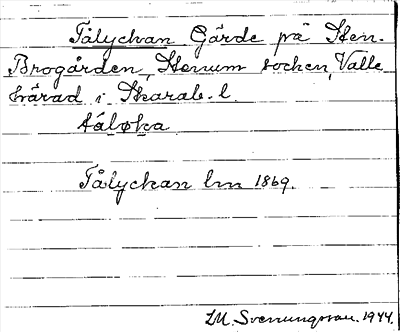 Tålyckan Gärde på Sten-
Brogården, Stenum socken, Valle
härad i Skarab. l.
tá̀løka
Tålyckan lm 1869.
I.M. Svennungsson. 1944.